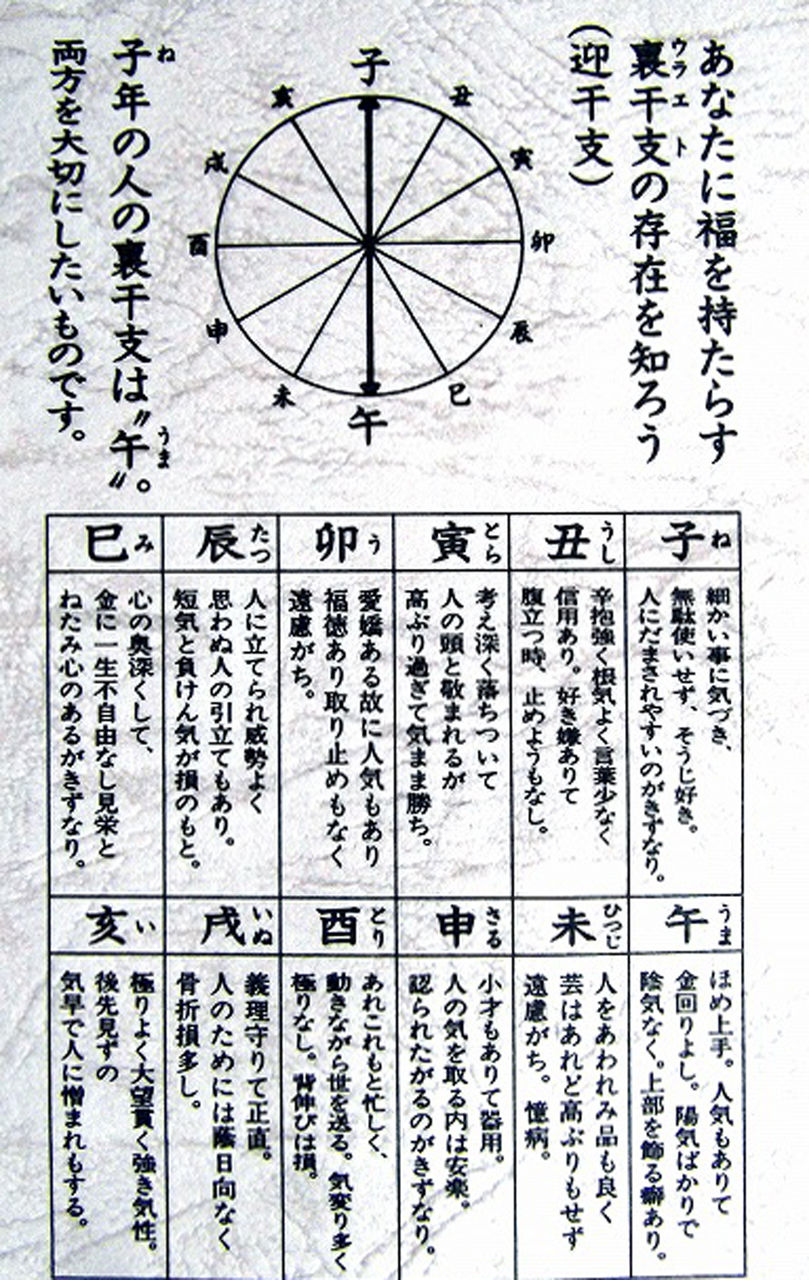 あなたに福を持たらす
裏干支の存在を知ろう
ウラエト
(迎干支)
子
丑
寅
卯
辰
巳
午
未
申
酉
戌
亥
子年の人の裏干支は〝午〟。
ね
うま
両方を大切にしたいものです。
子 ね
細かい事に気づき、
無駄使いせず、そうじ好き。
人にだまされやすいのがきずなり。
丑 うし
辛抱強く根気よく言葉少なく
信用あり。好き嫌ありて
腹立つ時、止めようもなし。
寅 とら
考え深く落ちついて
人の頭と敬まれるが
高ぶり過ぎて気まま勝ち。
卯 う
愛嬌ある故に人気もあり
福徳あり取り止めもなく
遠慮がち。
辰 たつ
人に立てられ威勢よく
思わぬ人の引立てもあり。
短気と負けん気が損のもと。
巳 み
心の奥深くして、
金に一生不自由なし見栄と
ねたみ心のあるがきずなり。
午 うま
ほめ上手。人気もありて
金回りよし。陽気ばかりで
陰気なく。上部を飾る癖あり。
未 ひつじ
人をあわれみ品も良く
芸はあれど高ぶりもせず
遠慮がち。憶病。
申 さる
小才もありて器用。
人の気を取る内は安楽。
認られたがるのがきずなり。
酉 とり
あれこれもと忙しく、
動きながら世を送る。気変り多く
極りなし。背伸びは損。
戌 いぬ
義理守りて正直。
人のためには蔭日向なく
骨折損多し。
亥 い
極りよく大望貫く強き気性。
後先見ずの
気早で人に憎まれもする。